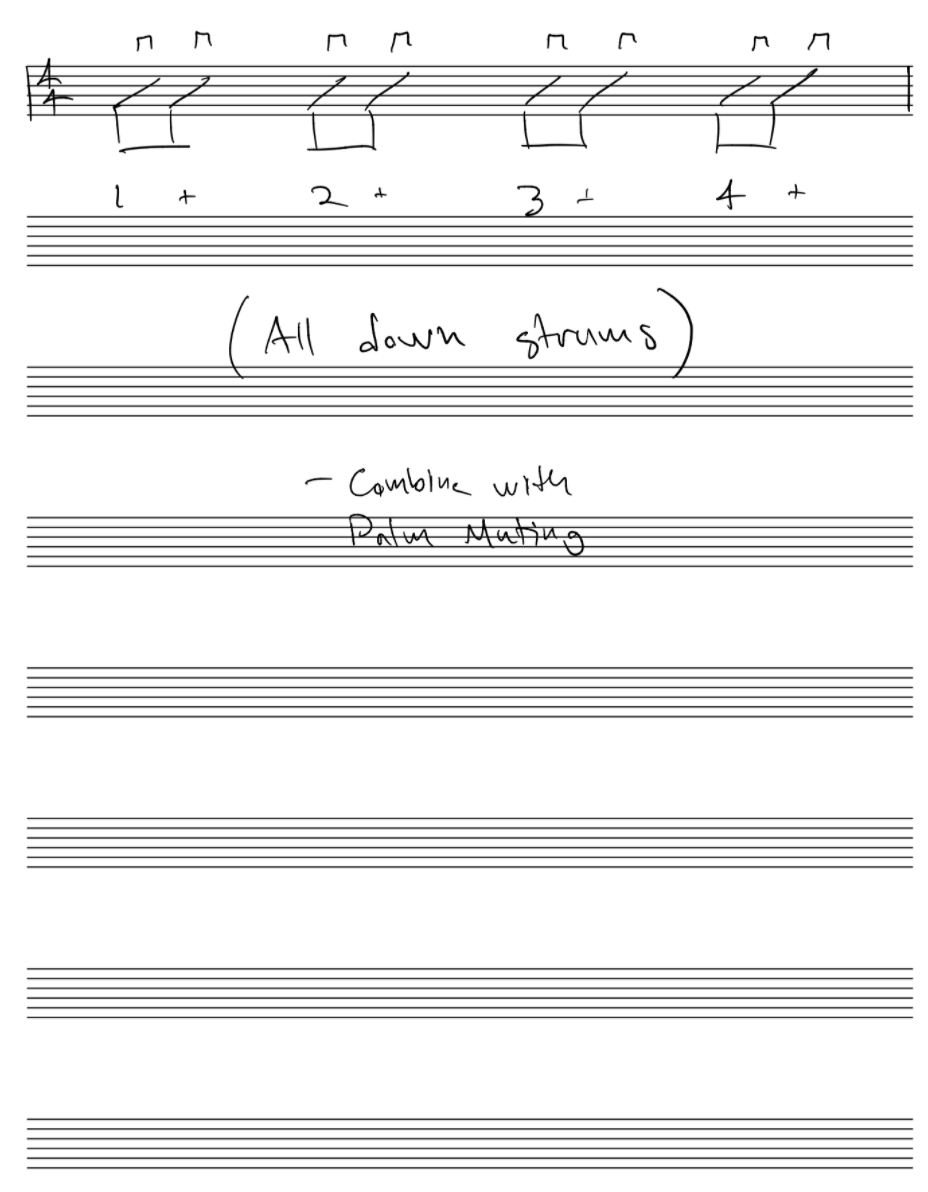 4
4
1 + 2 + 3 + 4 +
(All down strums)
- Combine with
Palm Muting